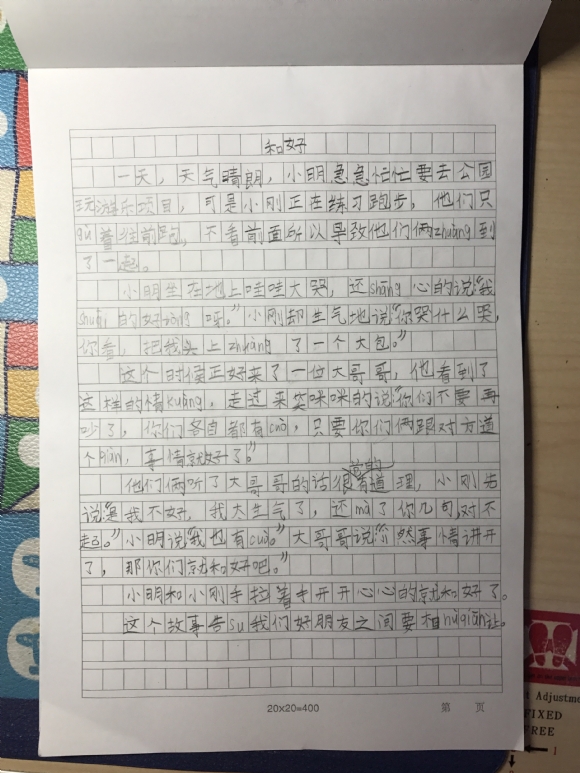 和好
一天，天气晴朗，小明急急忙忙要去公园
玩游乐项目，可是小刚正在练习跑步，他们只
gù着往前跑，不看前面所以导致他们俩zhuàng到
了一起。
小明坐在地上哇哇大哭，还shāng心的说“我
shuāi的好tòng呀。”小刚却生气地说“你哭什么哭，
你看，把我头上zhuàng了一个大包。”
这个时候正好来了一位大哥哥，他看到了
这样的情kuàng，走过来笑咪咪的说“你们不要再
吵了，你们各自都有cuò，只要你们俩跟对方道
个qiàn，事情就好了。”
他们俩听了大哥哥的话很有道理，小刚先
说“是我不好，我大生气了，还mà了你几句，对不
起。”小明说“我也有cuò。”大哥哥说“然事情讲开
了，那你们就和好吧。”
小明和小刚手拉着手开开心心的就和好了。
这个故事告sù我们好朋友之间要相hù qiān让。
20×20=400 第 页
Adjustme
FIXED
FREE